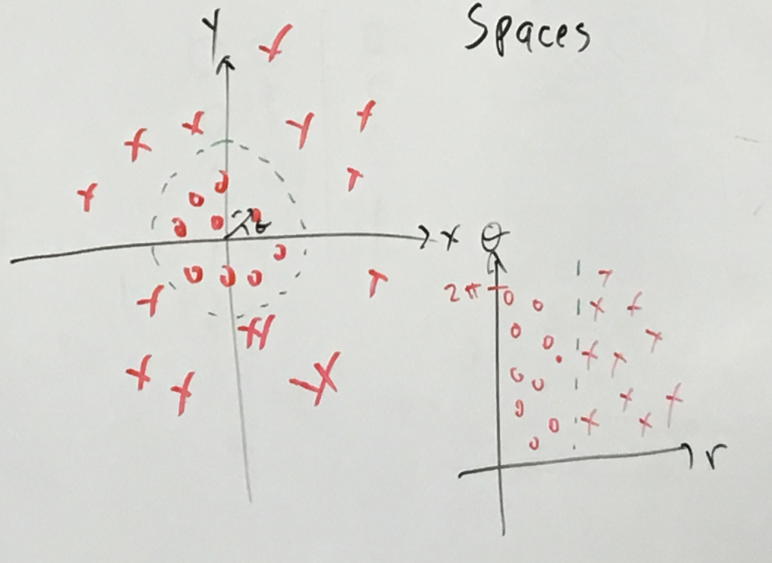 Spaces
y
x
θ
θ
2π
r